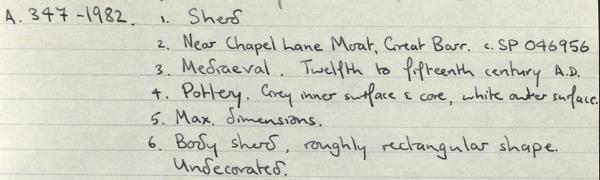 A. 347-1982. 1. Sherd
2. Near Chapel Lane Moat, Great Barr. c. SP 046956
3. Mediaeval. Twelfth to fifteenth century A.D.
4. Pottery. Grey inner surface & core, white outer surface.
5. Max. dimensions.
6. Body sherd, roughly rectangular shape.
Undecorated.